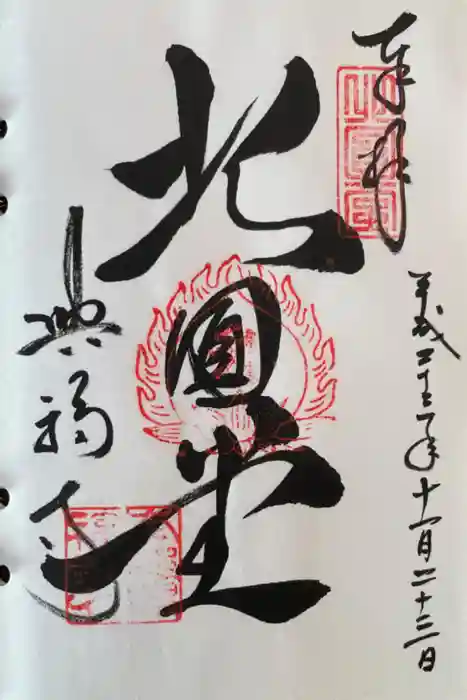 奉拝
平成二十三年十一月二十三日
北圓堂
興福寺